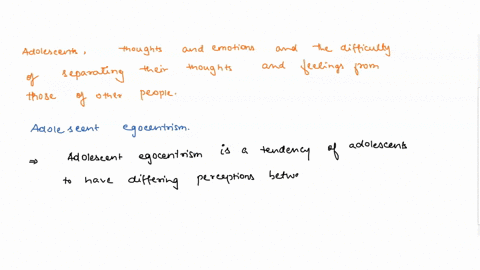 Adolescents, thoughts and emotions and the difficulty
of separating their thoughts and feelings from
those of other people.
Adolescent egocentrism.
⇒ Adolescent egocentrism is a tendency of adolescents
to have differing perceptions betwe